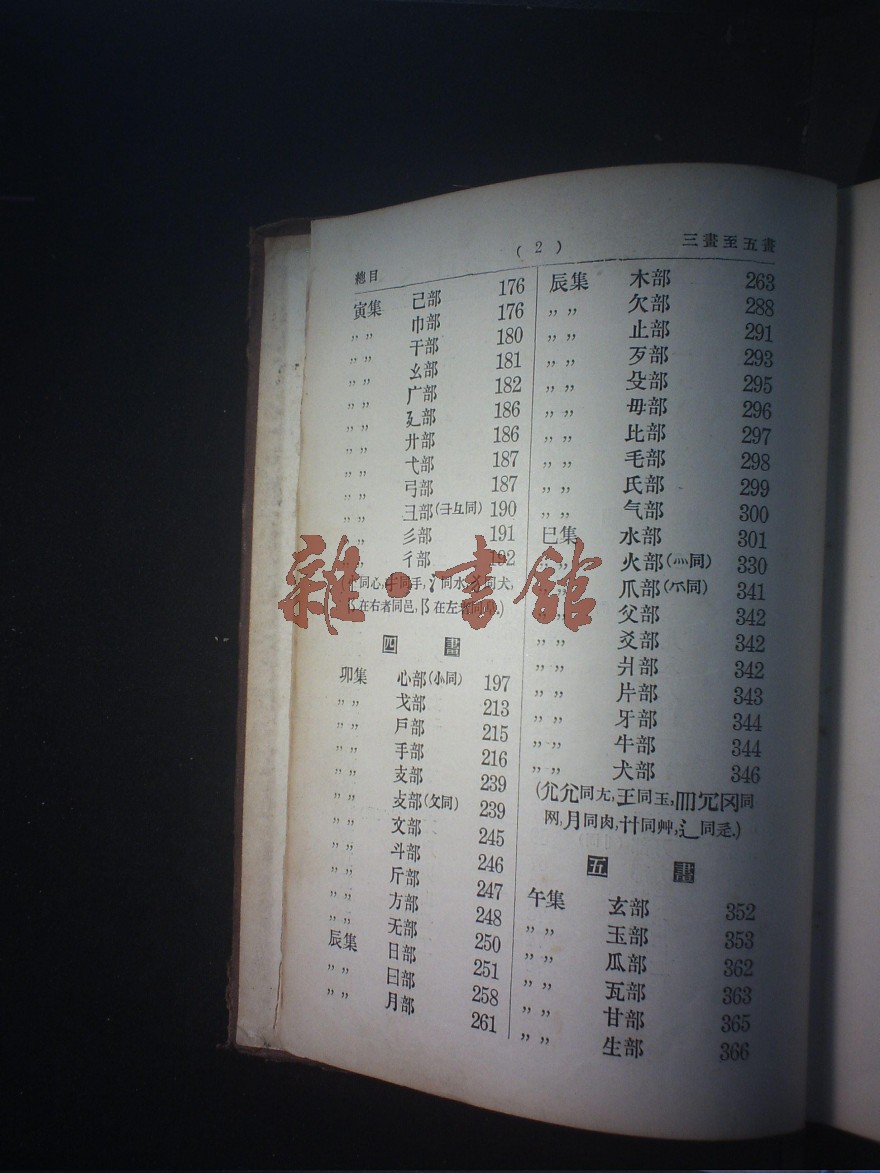 總目 (2) 三畫至五畫
寅集 己部 176
〃〃 巾部 176
〃〃 干部 180
〃〃 幺部 181
〃〃 广部 182
〃〃 廴部 186
〃〃 廾部 186
〃〃 弋部 187
〃〃 弓部 187
〃〃 彐部(彐彑同) 190
〃〃 彡部 191
〃〃 彳部 192
(忄同心,扌同手,氵同水,犭同犬,
阝在右者同邑,阝在左者同.)
四畫
卯集 心部(㣺同) 197
〃〃 戈部 213
〃〃 戶部 215
〃〃 手部 216
〃〃 支部 239
〃〃 攴部(攵同) 239
〃〃 文部 245
〃〃 斗部 246
〃〃 斤部 247
〃〃 方部 248
〃〃 无部 250
辰集 日部 251
〃〃 曰部 258
〃〃 月部 261
辰集 木部 263
〃〃 欠部 288
〃〃 止部 291
〃〃 歹部 293
〃〃 殳部 295
〃〃 毋部 296
〃〃 比部 297
〃〃 毛部 298
〃〃 氏部 299
〃〃 气部 300
巳集 水部 301
〃〃 火部(灬同) 330
〃〃 爪部(爫同) 341
〃〃 父部 342
〃〃 爻部 342
〃〃 爿部 342
〃〃 片部 343
〃〃 牙部 344
〃〃 牛部 344
〃〃 犬部 346
(同尢,王同玉,罒㓁𦉪同
网,月同肉,艹同艸,辶同辵.)
五畫
午集 玄部 352
〃〃 玉部 353
〃〃 瓜部 362
〃〃 瓦部 363
〃〃 甘部 365
〃〃 生部 366
雜·書館